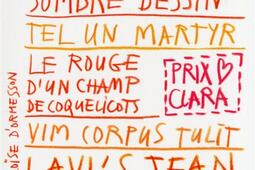 SOMBRE DESSIN
TEL UN MARTYR
LE ROUGE
D'UN CHAMP
DE COQUELICOTS
PRIX
CLARA
VIM CORPUS TULIT
LAVI'S JEAN
OISE D'ORMESSON